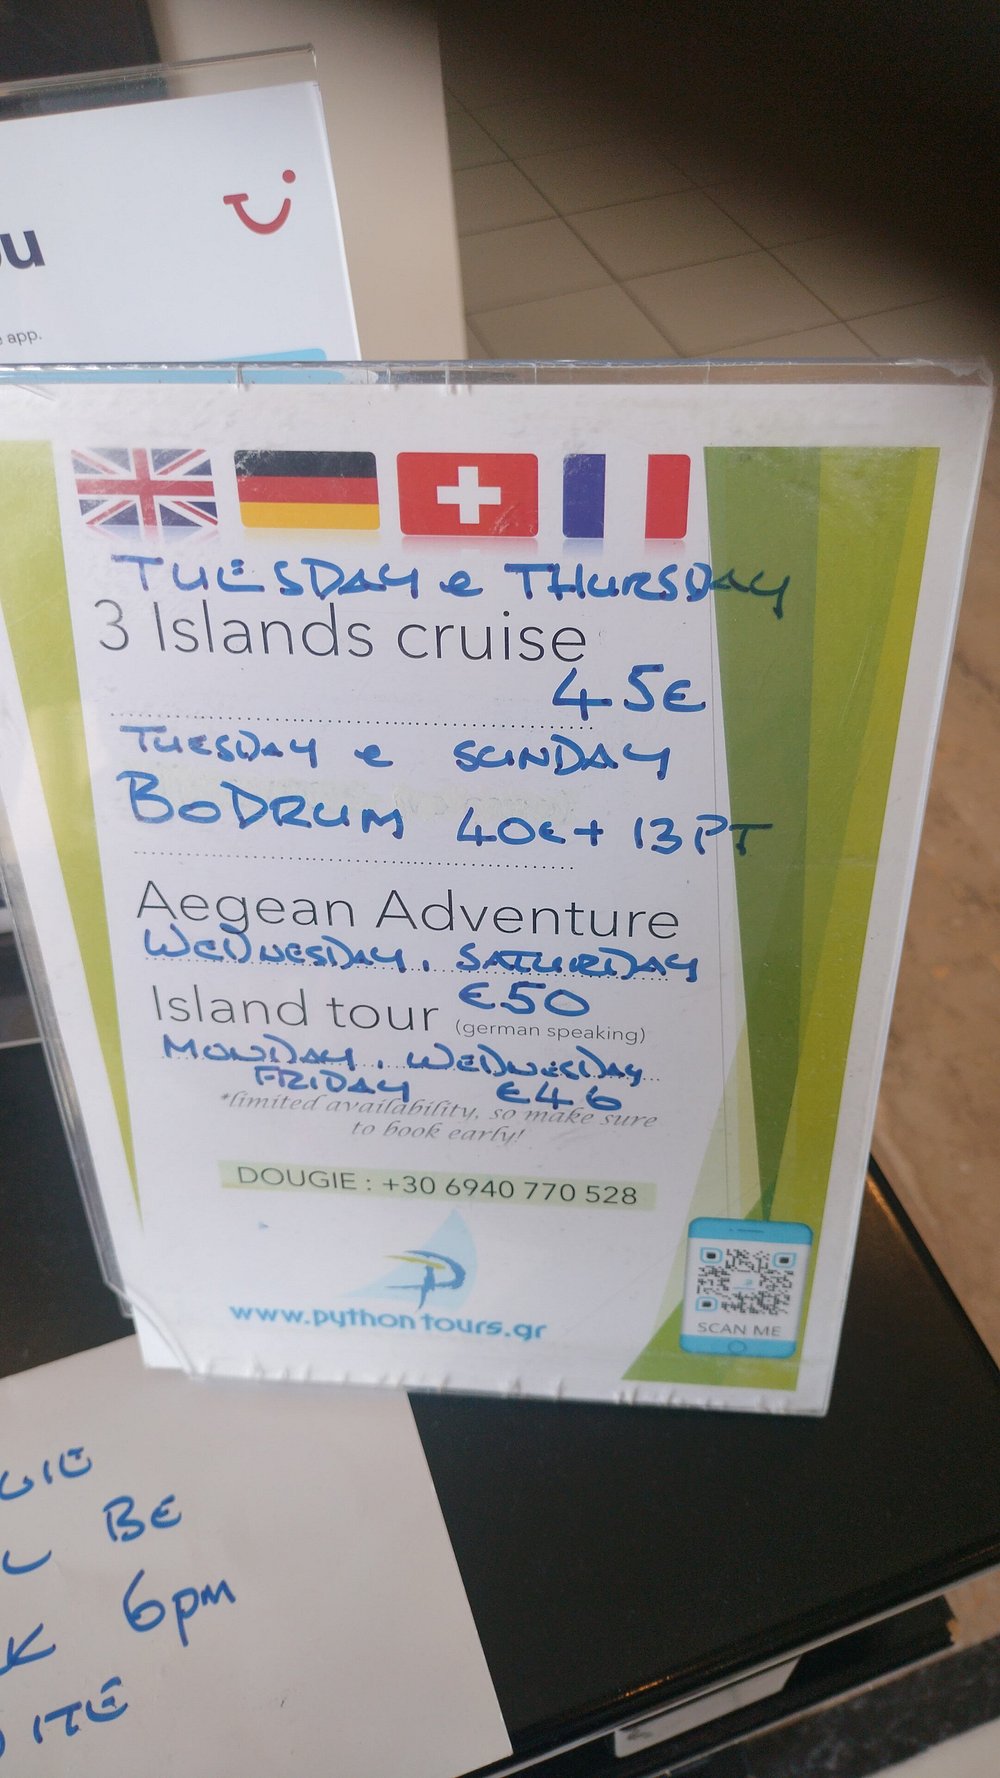 ou
e app.
TUESDAY e THURSDAY
3 Islands cruise
45€
TUESDAY e SUNDAY
BODRUM 40€ + 13 PT
Aegean Adventure
WEDNESDAY, SATURDAY
€50
Island tour (german speaking)
MONDAY, WEDNESDAY
FRIDAY €46
*limited availability, so make sure
to book early!
DOUGIE : +30 6940 770 528
www.pythontours.gr
SCAN ME
GIE
L BE
K 6pm
ITE